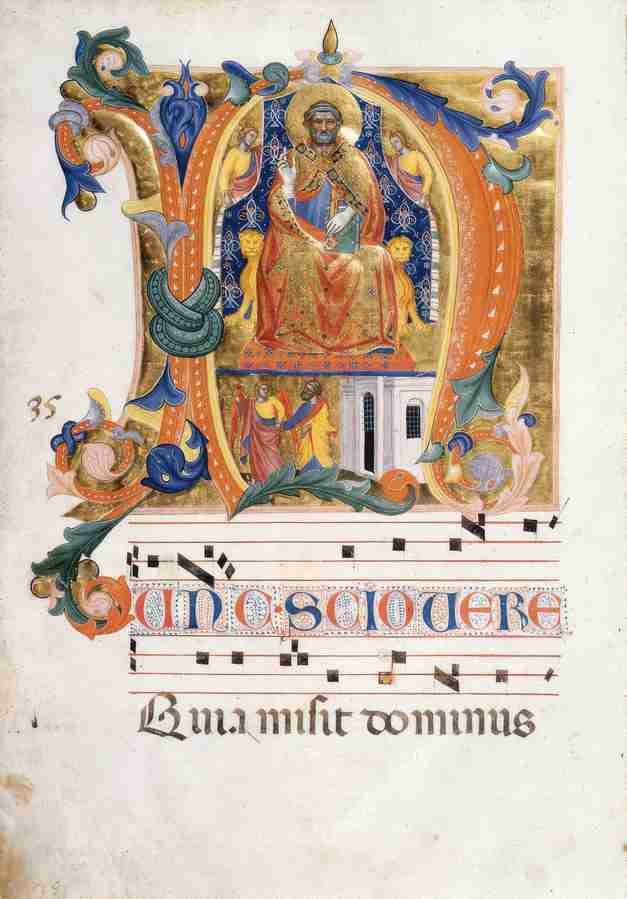 35
NUNC·SCIO UERE
Quia misit dominus